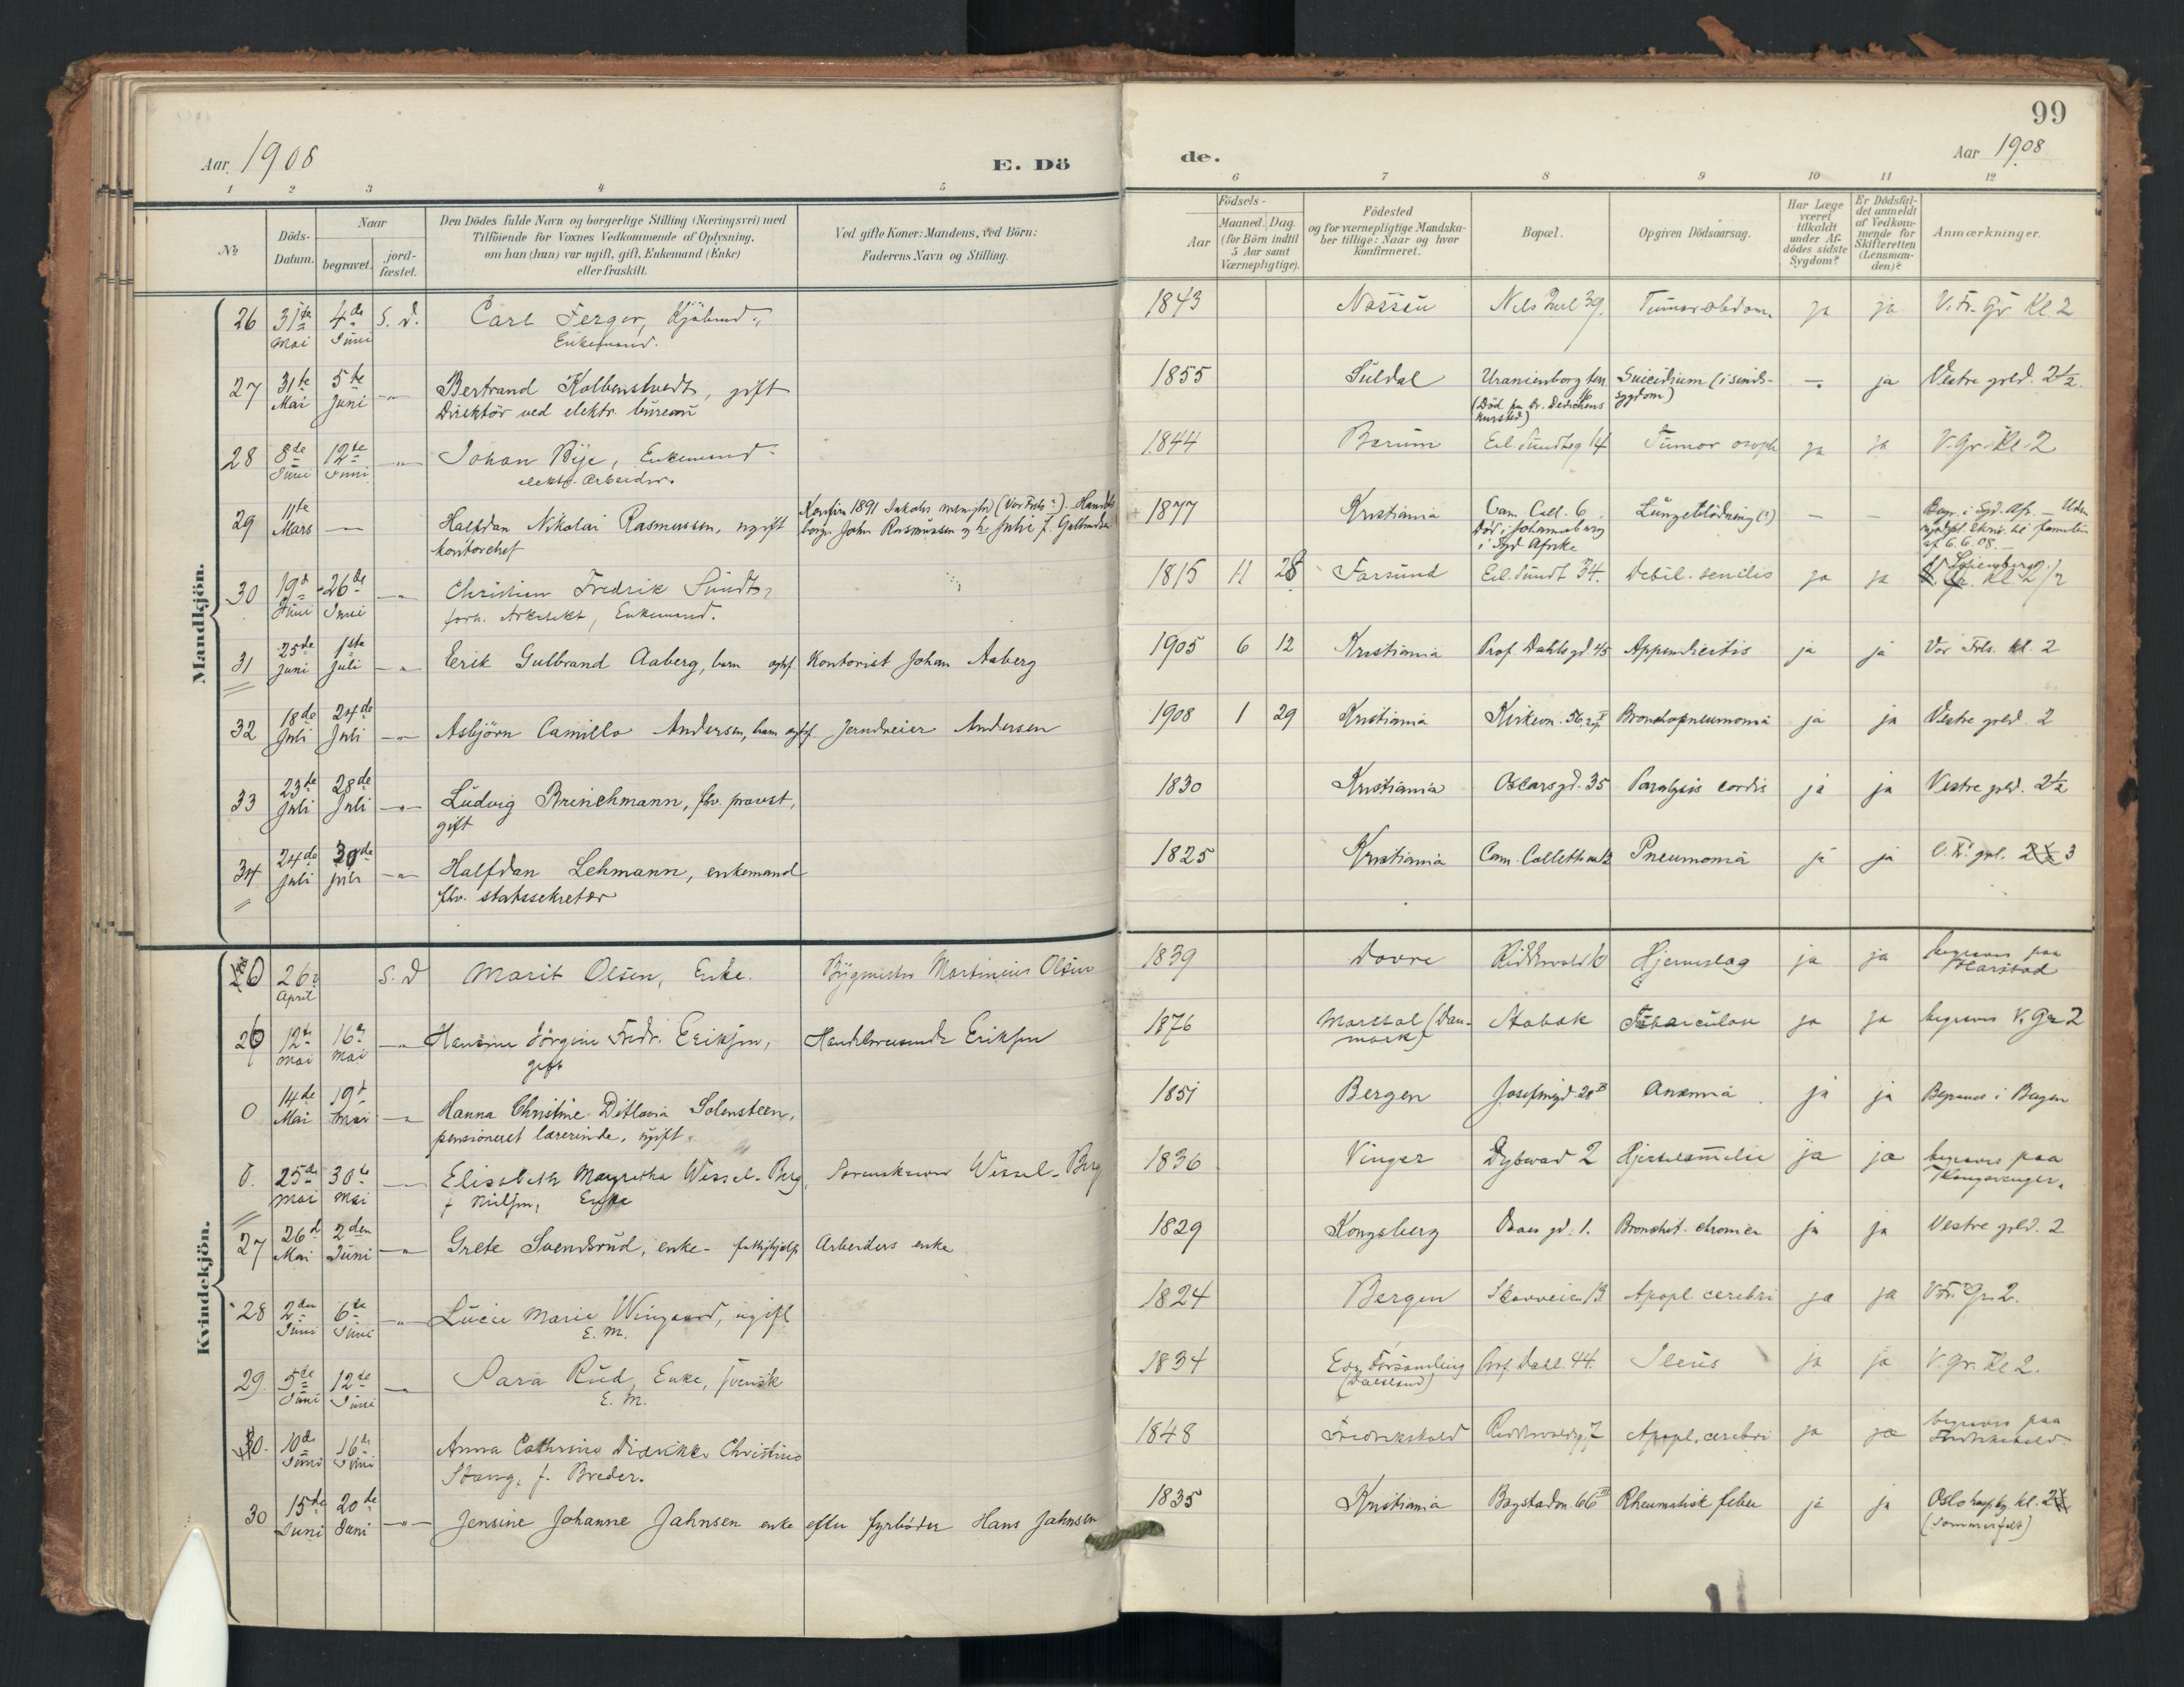 99
Aar 1908
E. Dö
de.
Aar 1908
1 2 3 4 5 6 7 8 9 10 11 12
No.
Döds-
Datum.
Naar
begravet.
jord-
fæstet.
Den Dödes fulde Navn og borgerlige Stilling (Næringsvei) med
Tilföiende for Voxnes Vedkommende af Oplysning.
om han (hun) var ugift, gift, Enkemand (Enke)
eller fraskilt.
Ved gifte Koner: Mandens, ved Börn:
Faderens Navn og Stilling.
Födsels-
Aar
Maaned. Dag.
(for Börn indtil
5 Aar samt
Værnepligtige).
Födested
og for værnepligtige Mandska-
ber tillige: Naar og hvor
Konfirmeret.
Bopæl.
Opgiven Dödsaarsag.
Har Læge
været
tilkaldt
under Af-
dödes sidste
Sygdom?
Er Dödsfal-
det anmeldt
af Vedkom-
mende for
Skifteretten
(Lensman-
den)?
Anmærkninger.
Mandkjön.
26 31te Mai 4de Juni S. D. Carl Ferger,
Enkemand.
1843 Nassau Nils Juel 39. Tumor abdom. ja ja V. Fr. Gr. Kl. 2
27 31te Mai 5te Juni -"- Bertrand Kolbenstvedt, gift
Direktör ved elektr. bureau
1855 Suldal Uranienborg ter. Suicidium (i sinds-
sygdom) - ja Vestre grld. 2½
(Död paa Dr. Dedichens
kursted)
28 8de Juni 12te Juni -"- Johan Bye, Enkemand
elektr. Arbeider.
1844 Bærum Eil. Sundtsg 14 Tumor ja ja V. Gr. Kl. 2
29 11te Mars - Halfdan Nikolai Rasmussen, ugift
kontorchef
Konfirm 1891 (Vor Frels.?).
John Rasmussen og h. Julie f.
1877 Kristiania Cam. Coll. 6 Lungeblödning (?) - -
Död i Johannesburg
i Syd Afrika
Begr. i Syd. Afr.
af 6. 6. 08.
30 19de Juni 26de Juni -"- Christian Fredrik Sundt,
forh. Arkitekt, Enkemand.
1815 11 28 Farsund Eil. Sundt 34. Debil. senilis ja ja
31 25de Juni 1ste Juli -"- Eerik Gulbrand Aaberg, barn Kontorist Johan Aaberg
1905 6 12 Kristiania Prof. Dahls gd. 45 Appendicitis ja ja Vor Frls. Kl. 2
32 18de Juli 24de Juli -"- Asbjörn Camillo Andersen, barn Jerndreier Andersen
1908 1 29 Kristiania Kirkevn. 56 Bronchopneumonia ja ja Vestre grld. 2
33 23de Juli 28de Juli -"- Ludvig Brinchmann, fhv. provst,
gift
1830 Kristiania Oscarsgd. 35 Paralysis cordis ja ja Vestre grld. 2½
34 24de Juli 30de Juli -"- Halfdan Lehmann, enkemand
fhv. statssekretær
1825 Kristiania Cam. Colletts Pneumonia ja ja V. Fr. grl. 3
Kvindekjön.
0 26de April S. D Marit Olsen, Enke. Bygmester Martinius Olsen
1839 Dovre Hjerneslag ja ja begraves paa
Harstad
26 12te Mai 16de Mai -"- Hansine Jörgine Fredr. Eriksen,
gift
Handelsreisende Eriksen
1876 Marstal (Dan-
mark) Stabæk Tuberculose ja ja begraves V. Gr 2
0 14de Mai 19de Mai -"- Hanna Christine Ditlovia Solensteen,
pensioneret lærerinde, ugift.
1851 Bergen Josefinegd. 28 Anæmia ja ja Begraves i Bergen
0. 25de Mai 30te Mai Elisabeth Margretha Wessel-Berg,
f Nielsen, Enke
Sorenskriver Wessel-Berg
1836 Vinger Dybwad 2 Hjertelammelse ja ja begraves paa
Kongsvinger.
27 26de Mai 2den Juni -"- Grete Svendsrud, enke Arbeiders enke
1829 Kongsberg Daas gd. 1. Bronchit. chronica ja ja Vestre grld. 2
28 2den Juni 6te Juni -"- Lucie Marie Wingaard, ugift
E. M.
1824 Bergen Skovveien 13 Apopl. cerebri ja ja V. Fr. Gr. 2.
29. 5te Juni 12te Juni Sara Rud, Enke, svensk
E. M.
1834 Forsamling
(Dalsland) Prof. Dahl. 44. Ileus ja ja V. Gr. Kl 2.
30. 10de Juni 16de Juni Anna Cathrine Didrikke Christine
Stang, f. Breder.
1848 Fredrikshald Apopl. cerebri ja ja begraves paa
Fredrikshald.
30 15de Juni 20de Juni -"- Jensine Johanne Jahnsen enke efter fyrböder Hans Jahnsen
1835 Kristiania Bogstadvn. 66 Rheumatisk feber ja ja Oslo hospital kl. 2
(Sommerfelt)